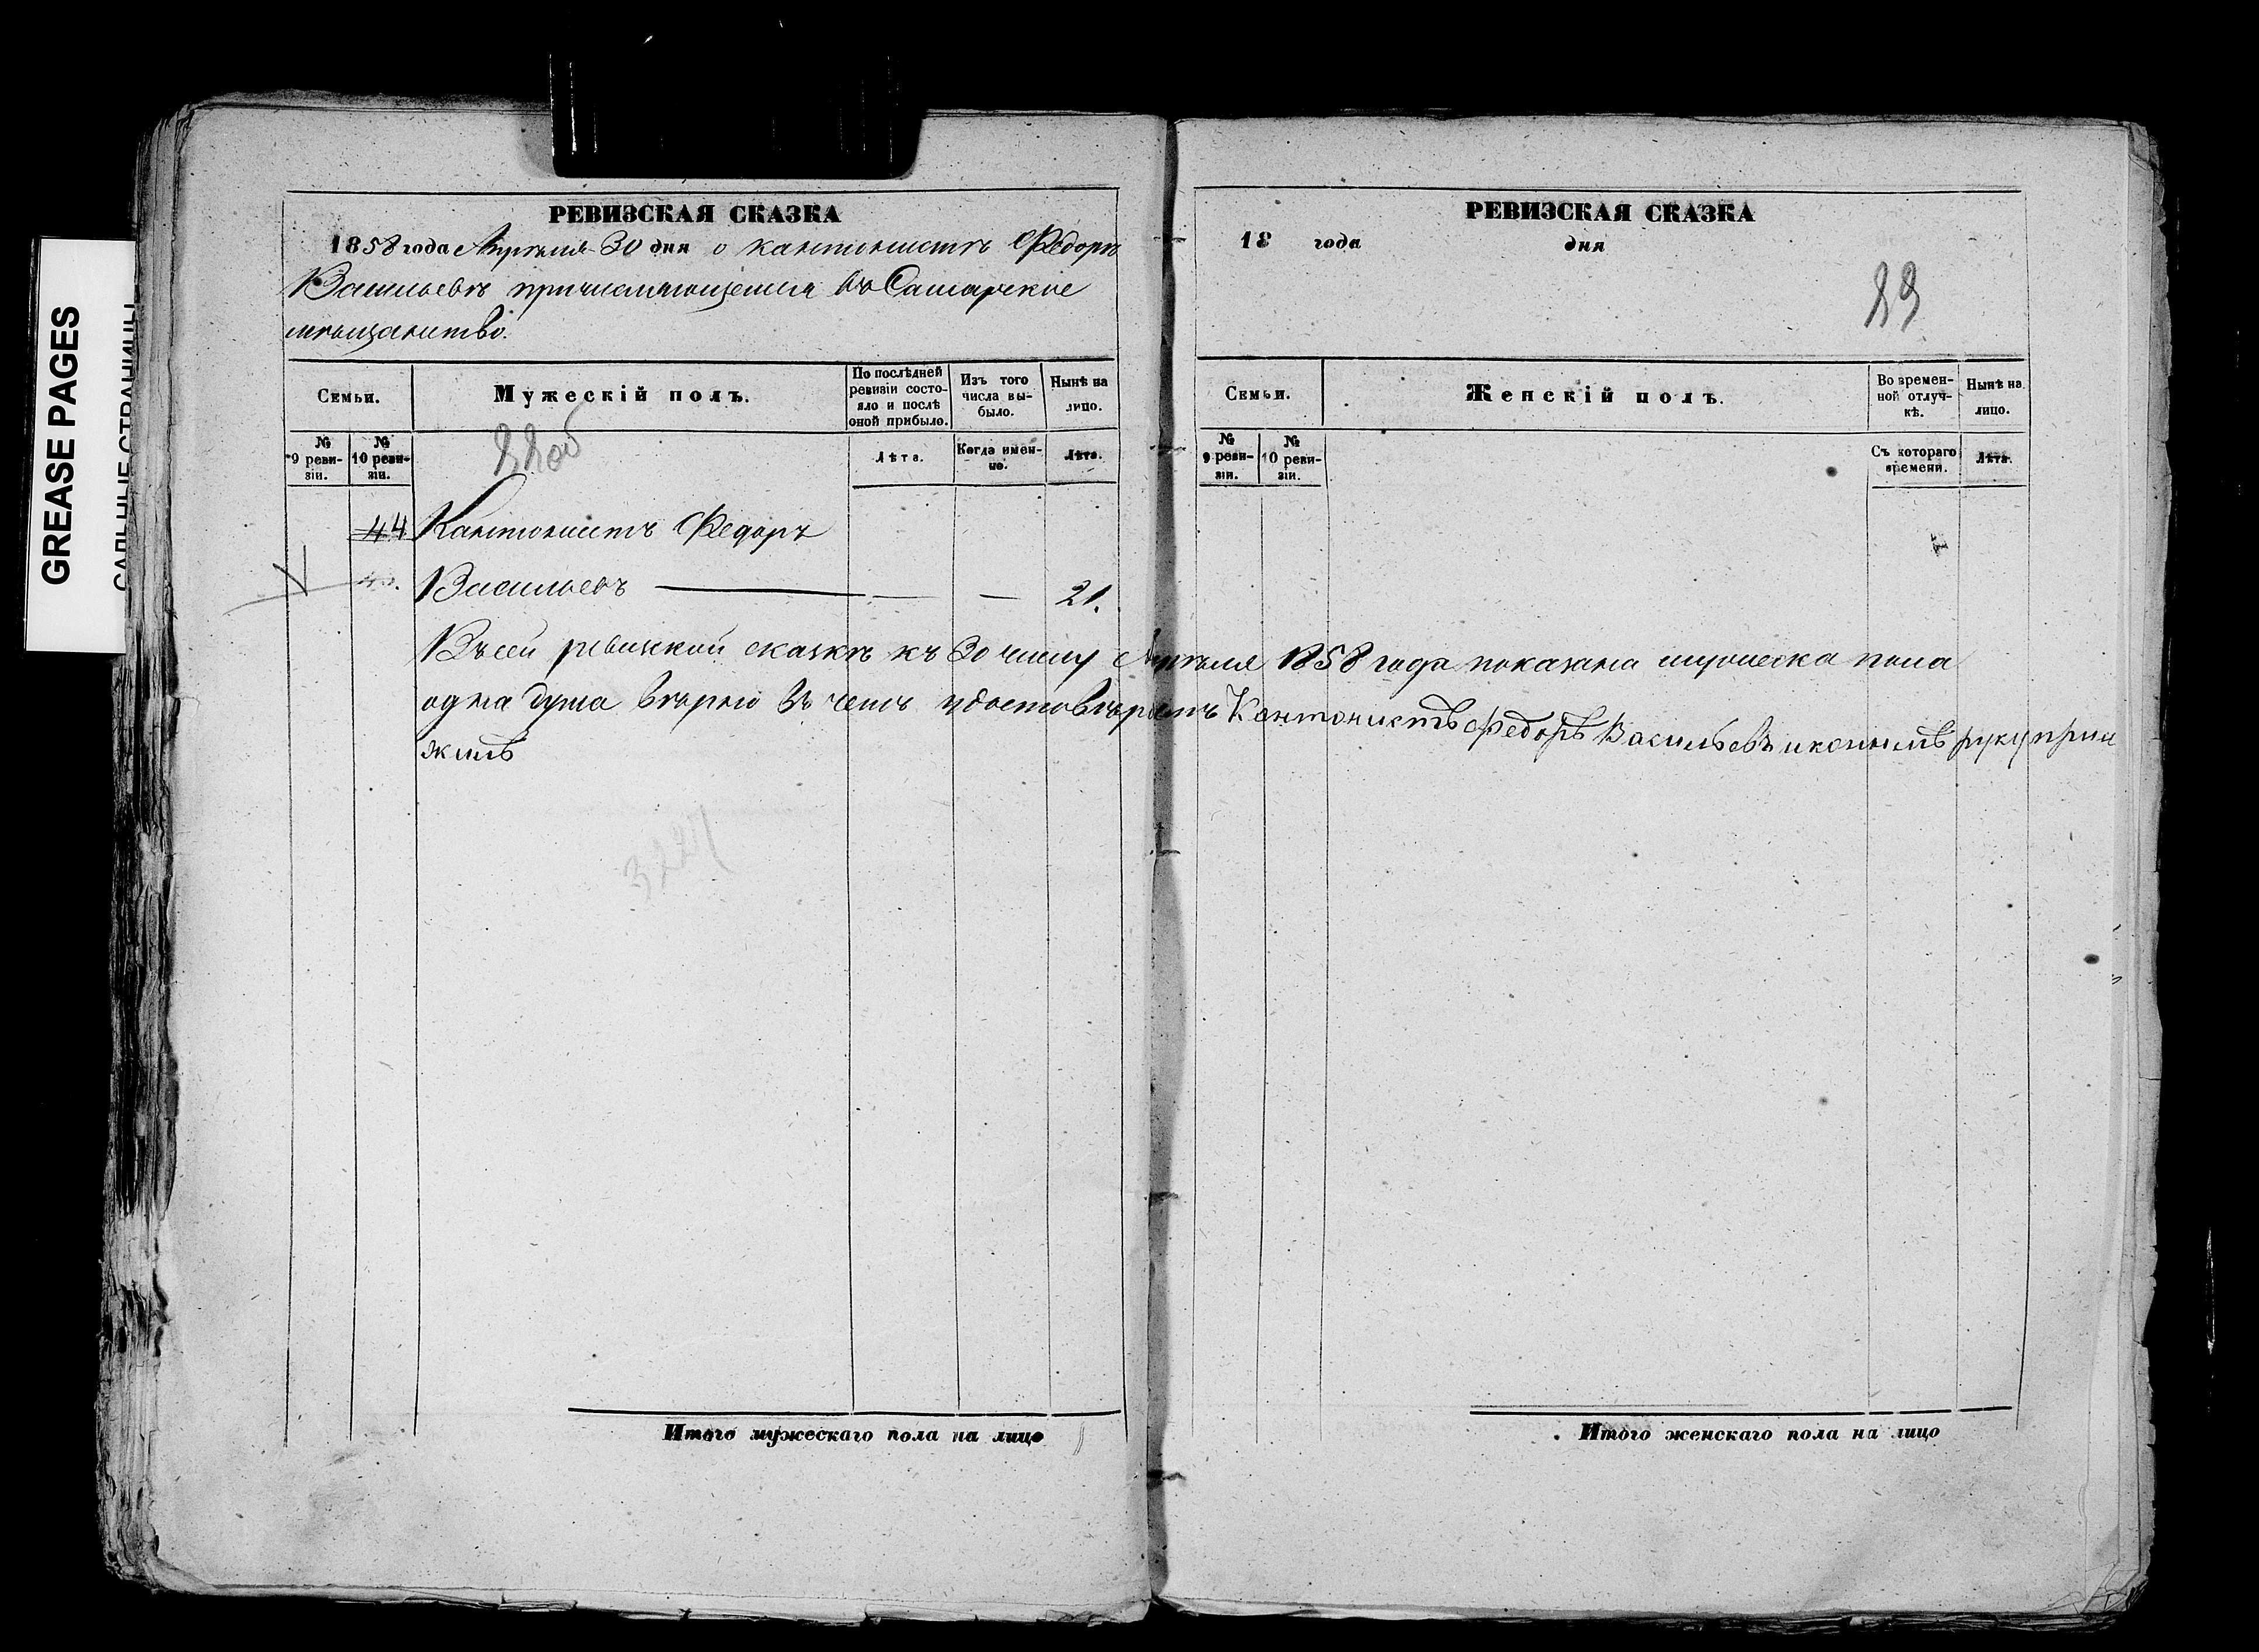 GREASE PAGES
САЛЬНЫЕ СТРАНИЦЫ
РЕВИЗСКАЯ СКАЗКА
1858 года Апрѣля 30 дня о кантонистѣ Федорѣ
Васильевѣ причисляющемся въ Самарское
мѣщанство.
Семьи.
Мужескій полъ.
По послѣдней ревизіи состояло и послѣ оной прибыло.
Изъ того числа выбыло.
Нынѣ на лицо.
№ 9 ревизіи.
№ 10 ревизіи.
Лѣта.
Когда именно.
Лѣта.
44 Кантонистъ Федоръ
Васильевъ — — — 21.
Въ сей ревизской сказкѣ къ 30 числу Апрѣля 1858 года показана мужеска пола
одна душа вѣрно въ чемъ удостовѣряетъ Кантонистъ Федоръ Васильевъ руку прило
жилъ
3227
Итого мужескаго пола на лицо
РЕВИЗСКАЯ СКАЗКА
18 года дня
Семьи.
Женскій полъ.
Во временной отлучкѣ.
Нынѣ на лицо.
№ 9 ревизіи.
№ 10 ревизіи.
Съ котораго времени.
Лѣта.
Итого женскаго пола на лицо